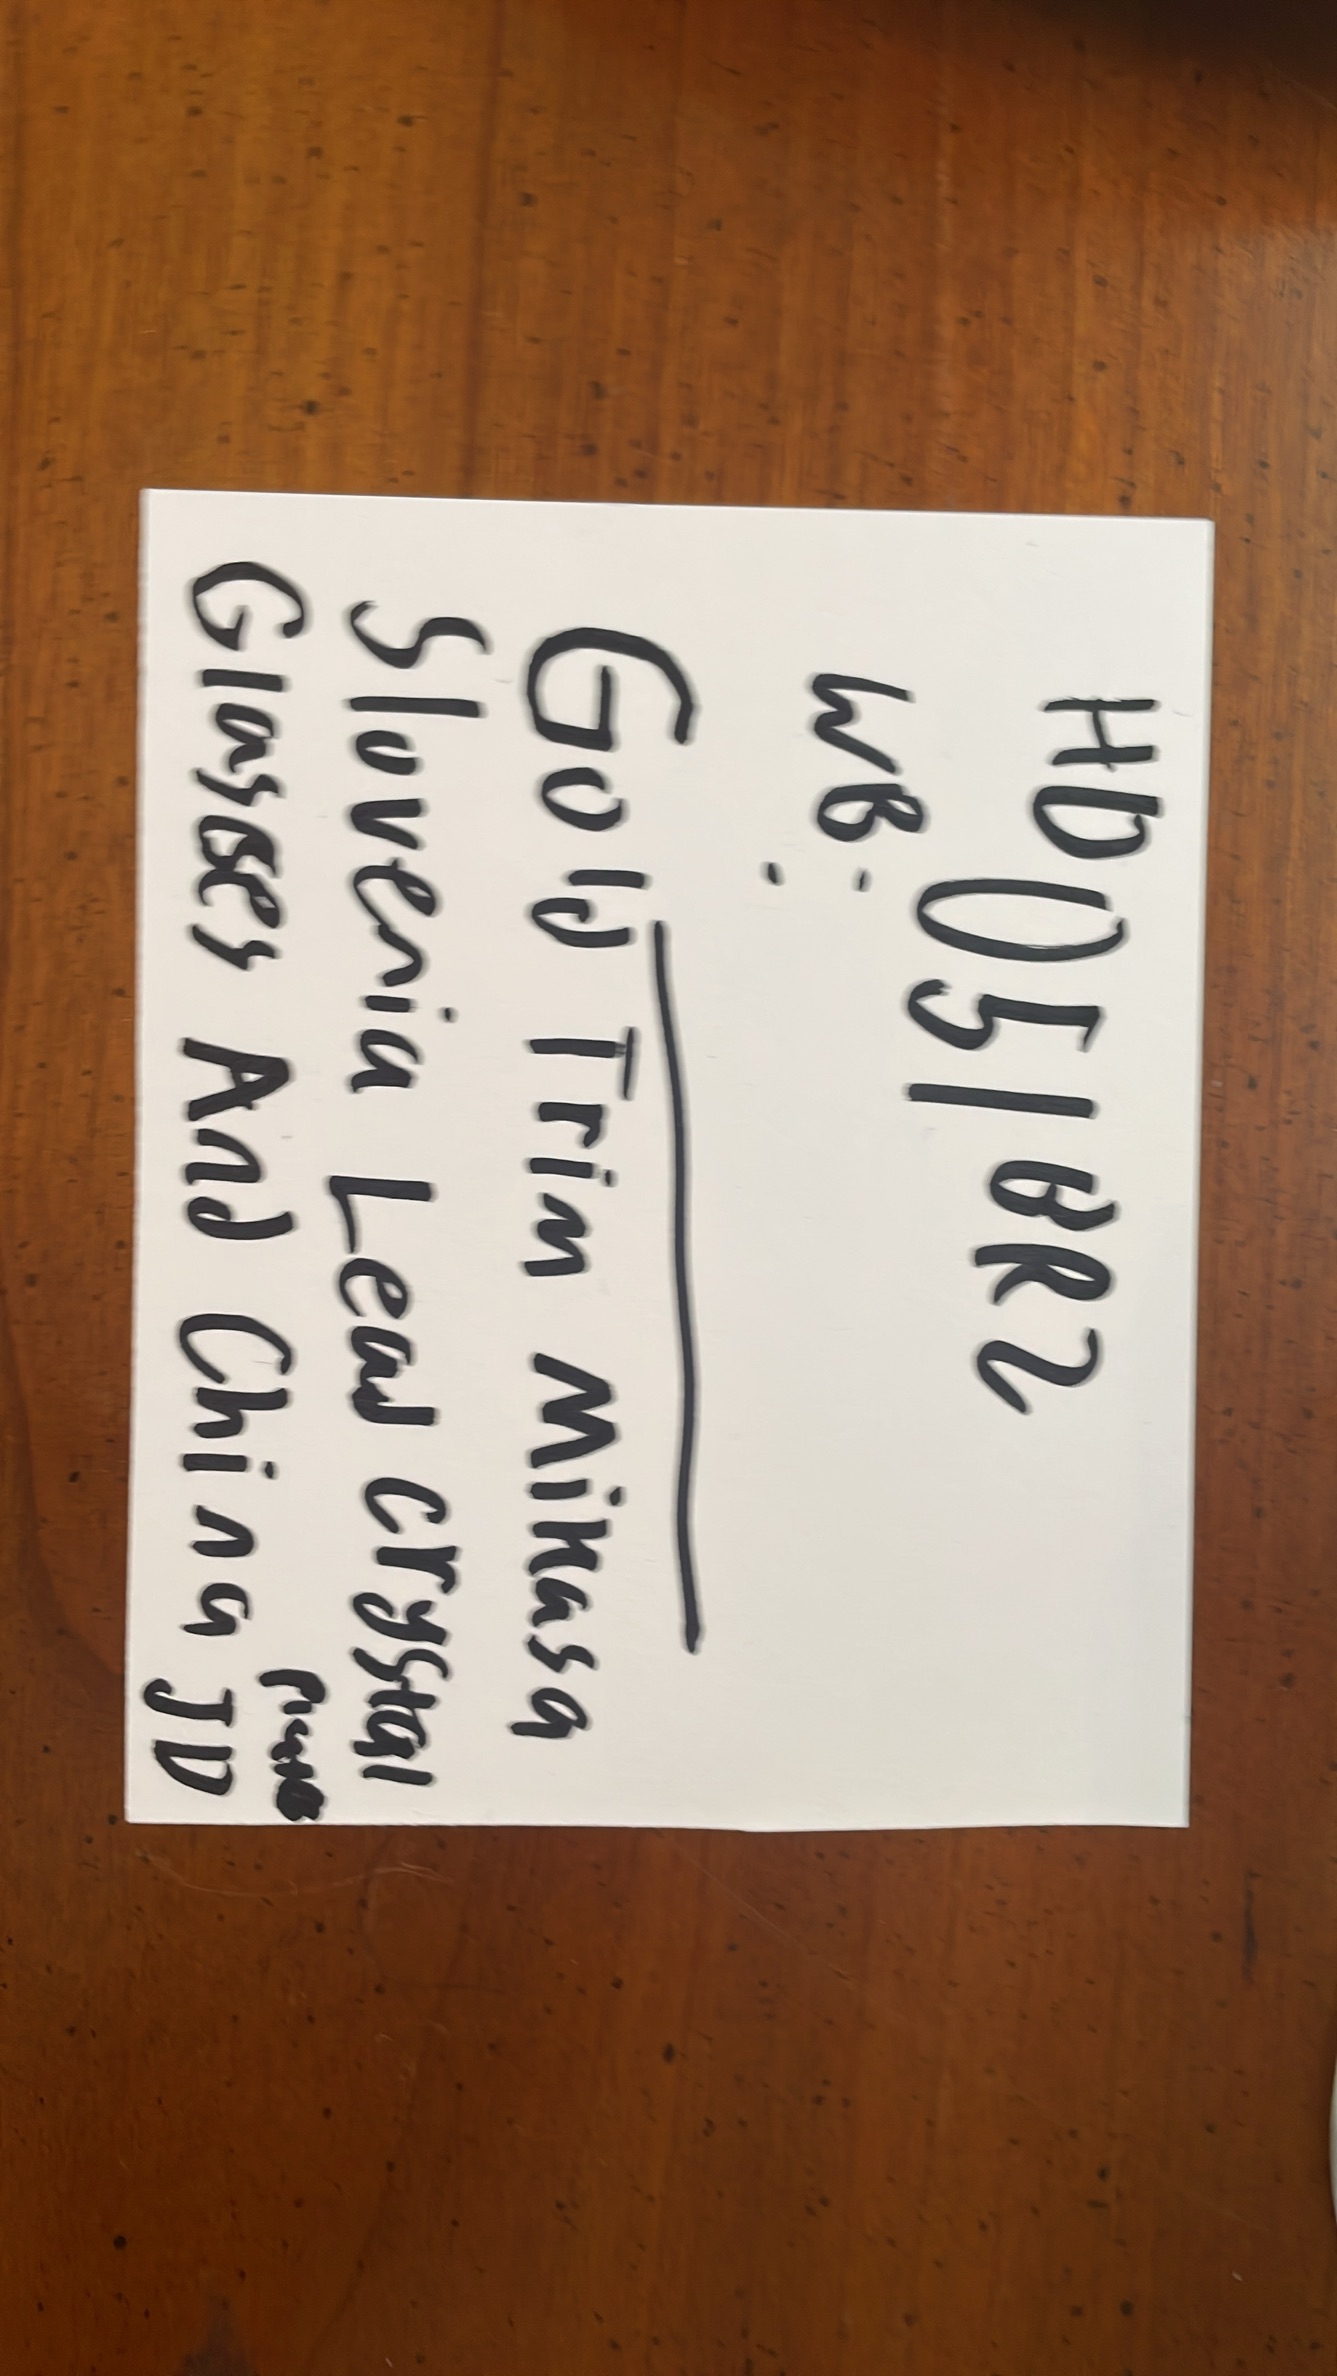 HD0518R2
WB:
Gold Trim Mikasa
Slovenia Lead crystal
Glasses And China JD